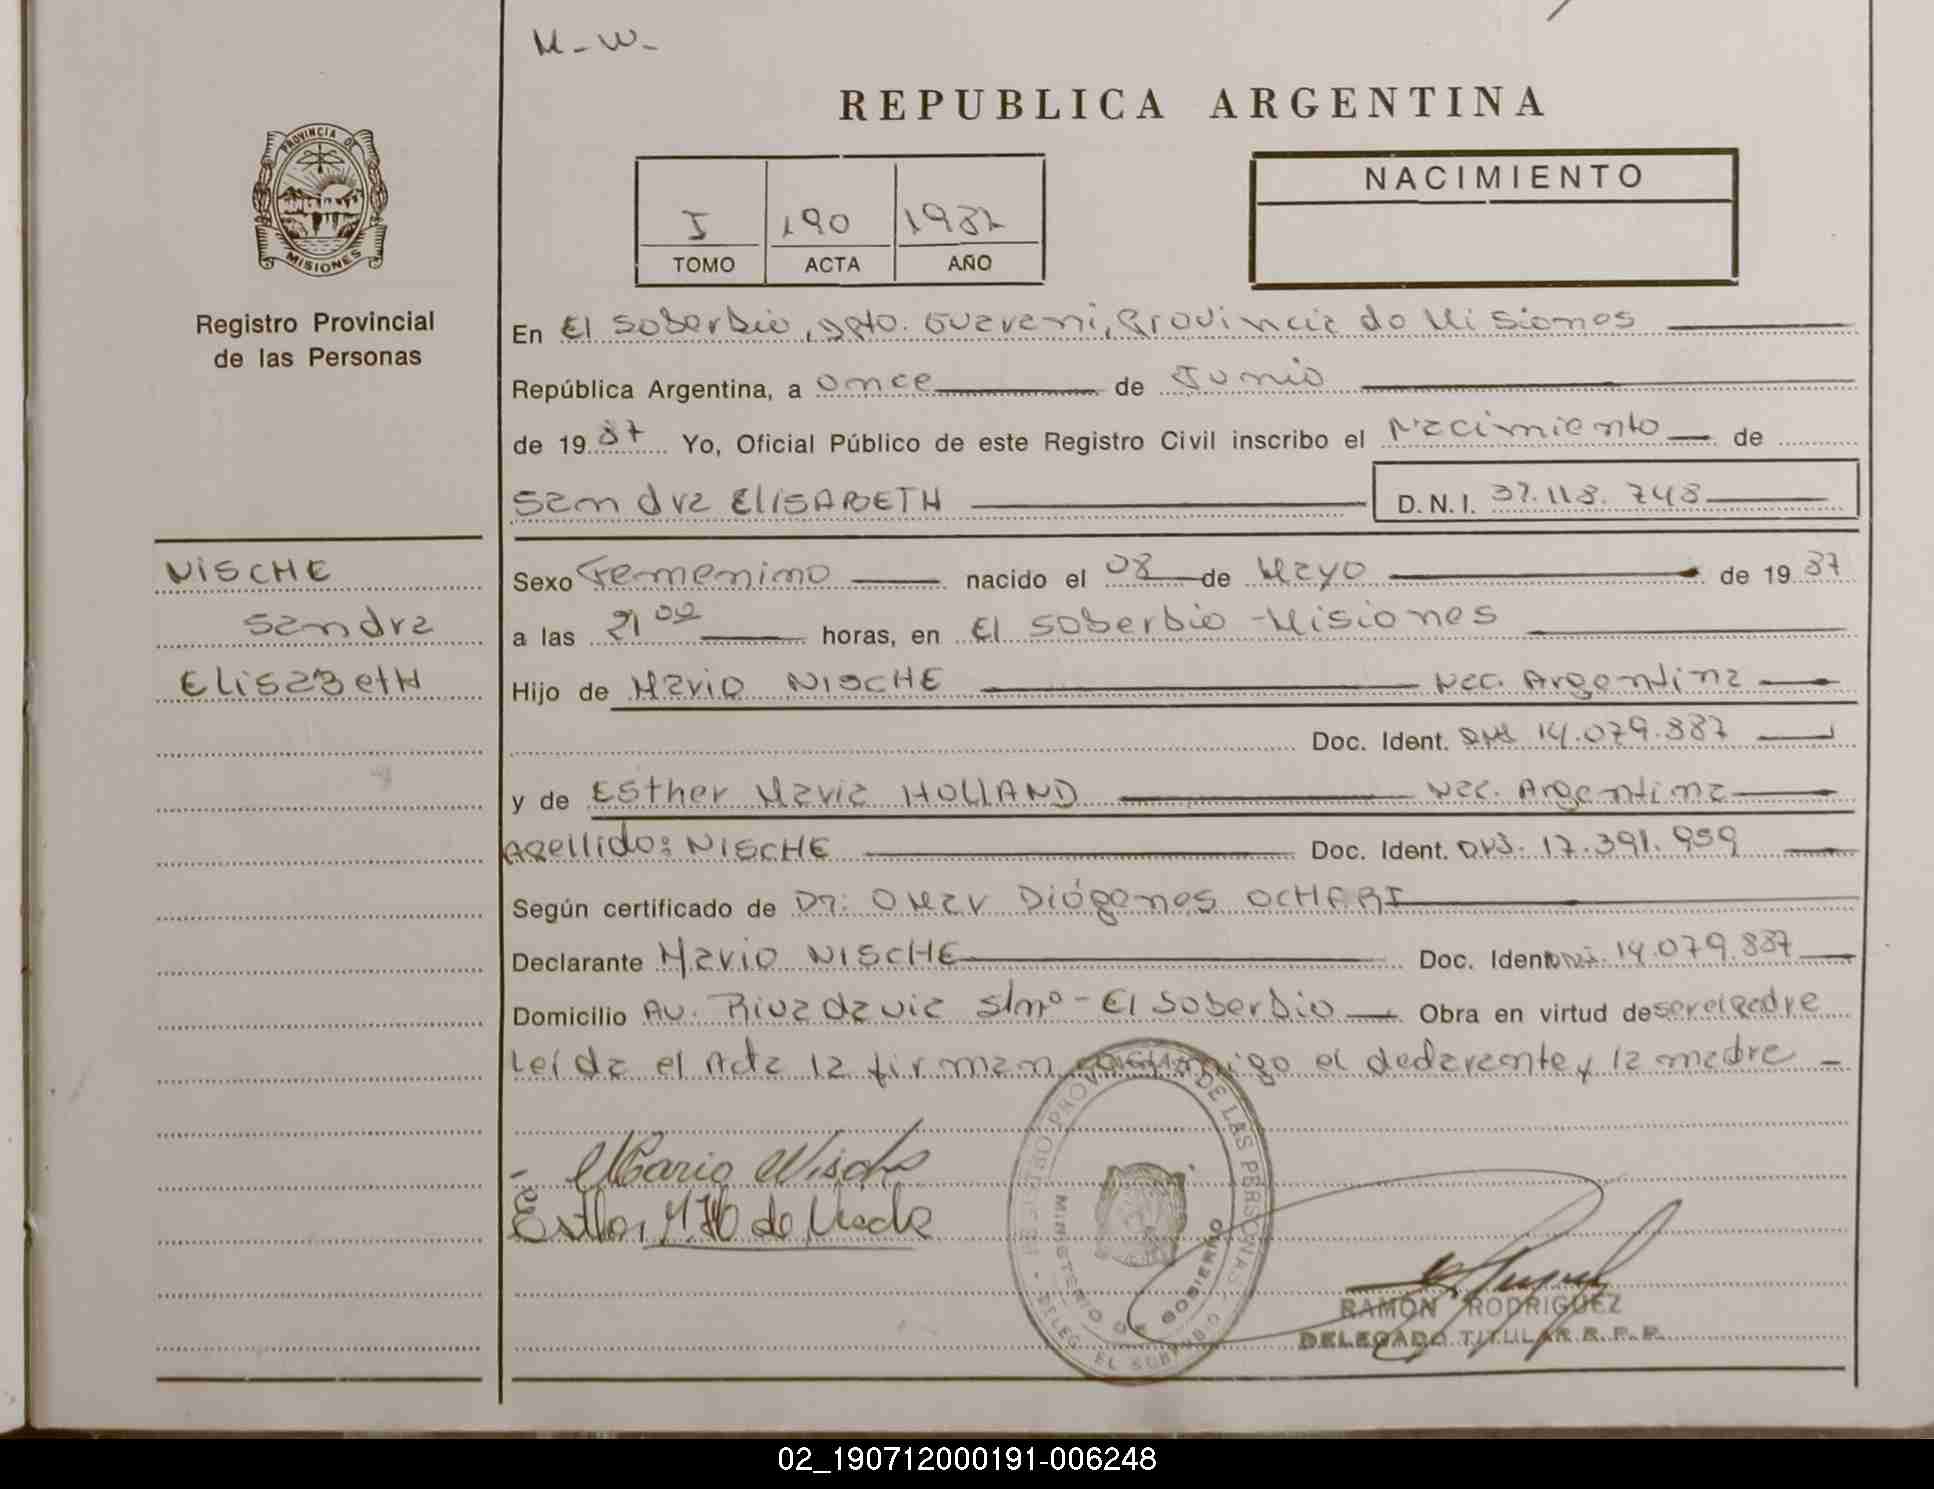 M-W-
REPUBLICA ARGENTINA
PROVINCIA DE MISIONES
I 190 1987
TOMO ACTA AÑO
NACIMIENTO
Registro Provincial
de las Personas
En El Soberbio, Dpto. Guarani, Provincia de Misiones
República Argentina, a once de Junio
de 1987 Yo, Oficial Público de este Registro Civil inscribo el Nacimiento de
Sandra ELISABETH D.N.I. 37.118.748
NISCHE
Sandra
ElisaBetH
Sexo Femenino nacido el 08 de Mayo de 1987
a las 21 00 horas, en El Soberbio - Misiones
Hijo de Mario NISCHE Nac. Argentina
Doc. Ident. DNI 14.079.887
y de Esther Maria HOLLAND Nac. Argentina
Apellido: NISCHE Doc. Ident. DNI. 17.391.959
Según certificado de Dr: OMar Diógenes OCHARI
Declarante Mario NISCHE Doc. Ident DNI. 14.079.887
Domicilio AV. Rivadavia s/nº - El Soberbio Obra en virtud de ser el padre
Leída el Acta la firman conmigo el declarante y la madre -
Mario Nische
Esther M. H de Nische
REGISTRO PROVINCIAL DE LAS PERSONAS
MINISTERIO DE GOBIERNO
DELEG. EL SOBERBIO
RAMON RODRIGUEZ
DELEGADO TITULAR R. P. P.
02_190712000191-006248